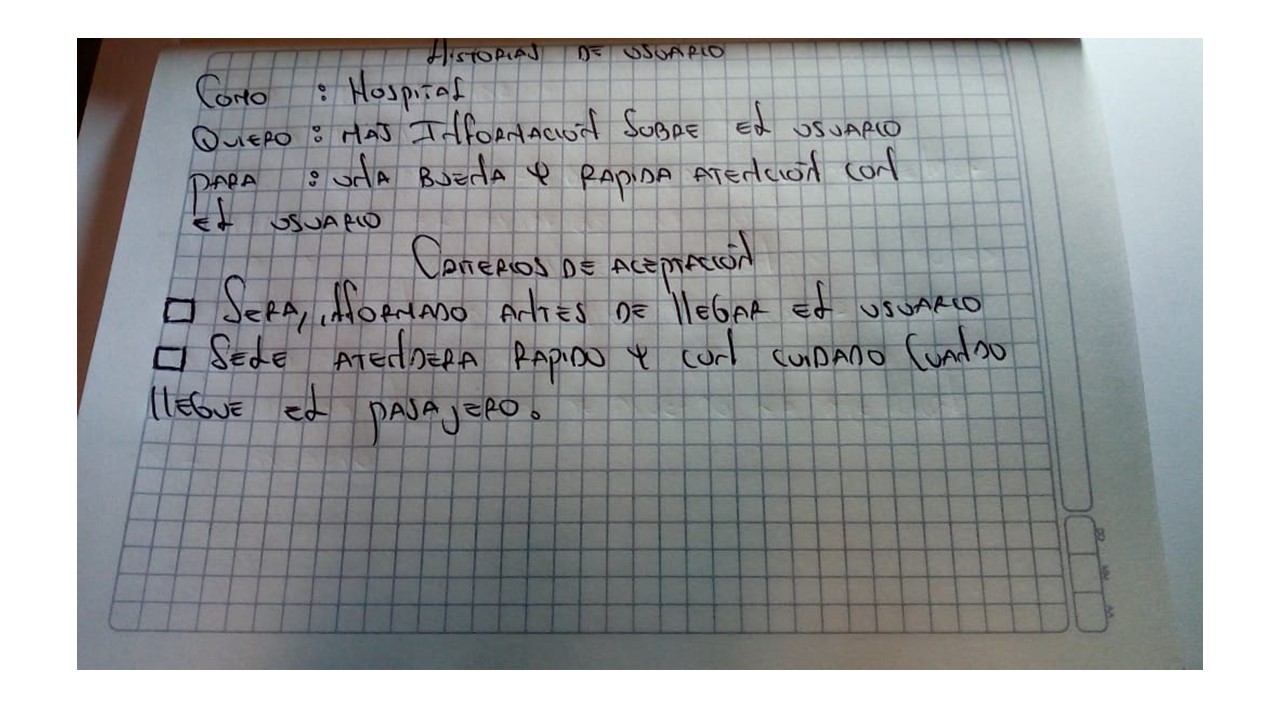 HISTORIAS DE USUARIO
COMO : HOSPITAL
QUIERO : MAS INFORMACIÓN SOBRE EL USUARIO
PARA : UNA BUENA Y RAPIDA ATENCIÓN CON
EL USUARIO
CRITERIOS DE ACEPTACIÓN
SERA, INFORMADO ANTES DE LLEGAR EL USUARIO
SELE ATENDERA RAPIDO Y CON CUIDADO CUANDO
LLEGUE EL PASAJERO.